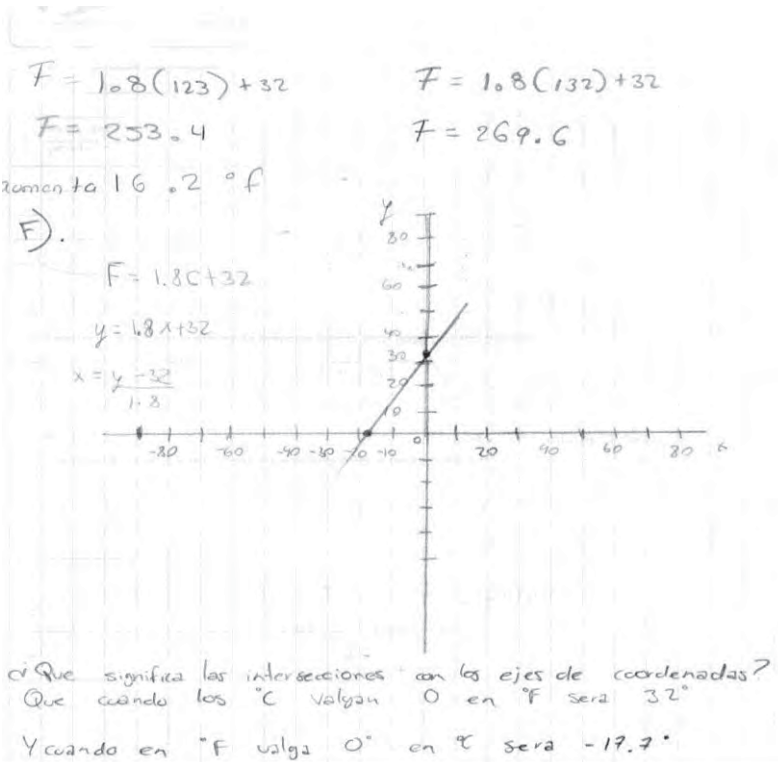 F = 1.8(123) + 32
F = 1.8(132) + 32
F = 253.4
F = 269.6
aumenta 16.2 °f
F).
F = 1.8C+32
y = 1.8x+32
x = y - 32
1.8
y
80
60
40
30
20
10
0
-80 -60 -40 -30 -20 -10 20 40 60 80 x
¿Que significa las intersecciones con los ejes de coordenadas?
Que cuando los °C valgan 0 en °F sera 32°
Y cuando en °F valga 0° en °C sera -17.7°